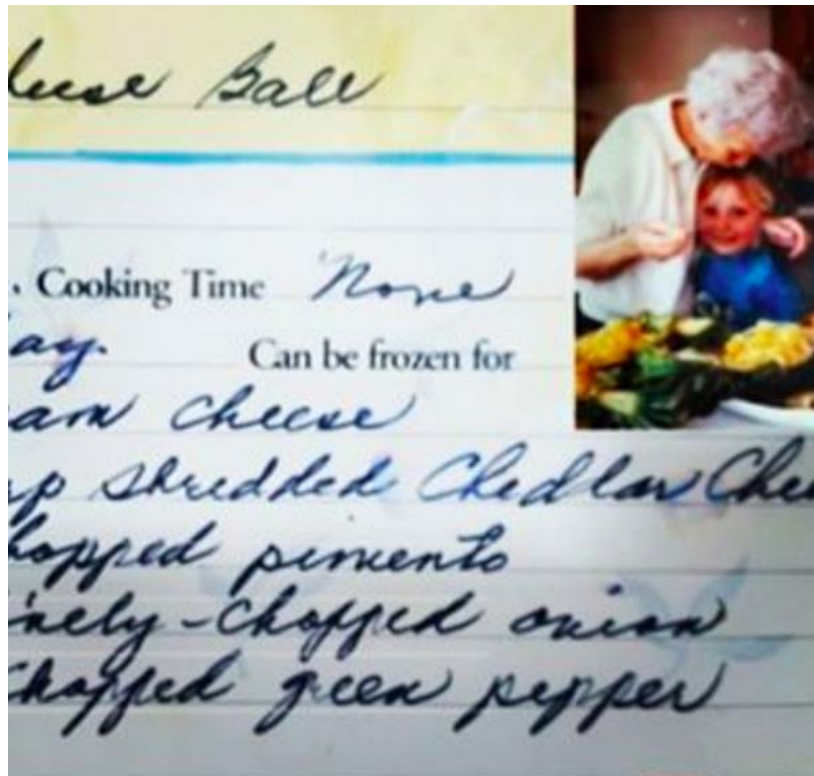 eese Ball
. Cooking Time None
ay. Can be frozen for
am cheese
up shredded Chedlar Chee
hopped pimento
inely-chopped onion
Chopped green pepper